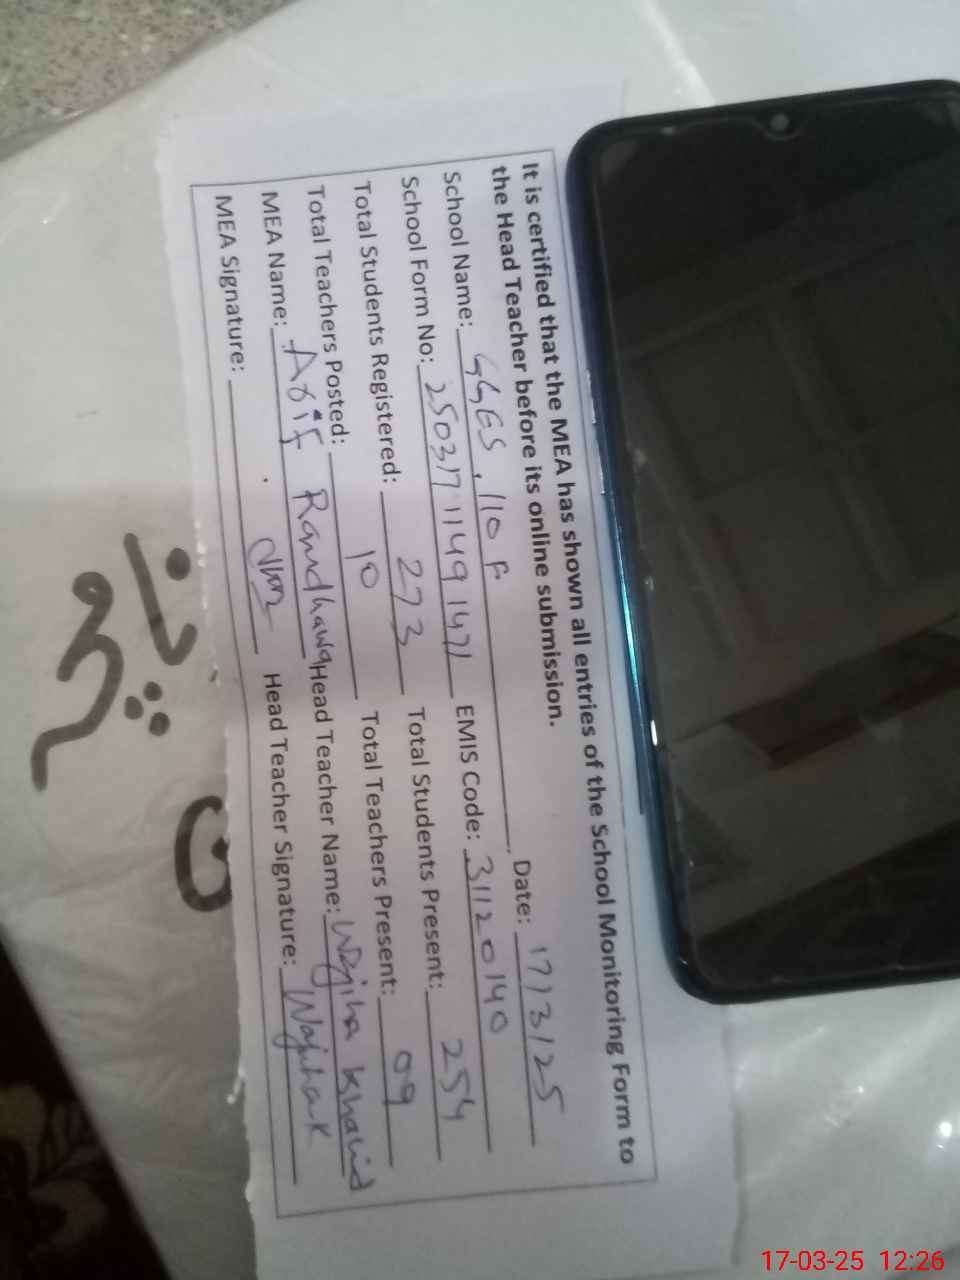 It is certified that the MEA has shown all entries of the School Monitoring Form to
the Head Teacher before its online submission.
School Name: GGES, 110 F Date: 17/3/25
School Form No: 25031711491471 EMIS Code: 31120140
Total Students Registered: 273 Total Students Present: 254
Total Teachers Posted: 10 Total Teachers Present: 09
MEA Name: Asif Randhawa Head Teacher Name: Wajiha Khalid
MEA Signature: Head Teacher Signature: WajihaK
17-03-25 12:26